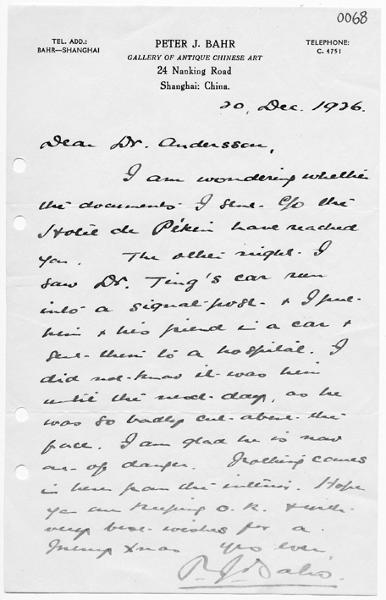 0068
TEL. ADD.:
BAHR—SHANGHAI
PETER J. BAHR
GALLERY OF ANTIQUE CHINESE ART
24 Nanking Road
Shanghai: China.
TELEPHONE:
C. 4751
20, Dec. 1926.
Dear Dr. Andersson,
I am wondering whether
the documents I sent c/o the
Hotel de Pékin have reached
you. The other night I
saw Dr. Ting's car run
into a signal post & I put
him & his friend in a car &
sent them to a hospital. I
did not know it was him
until the next day, as he
was so badly cut about the
face. I am glad he is now
out of danger. Nothing comes
in here from the interior. Hope
you are keeping O.K. & with
very best wishes for a
Merry Xmas Yrs ever,
P. J. Bahr.